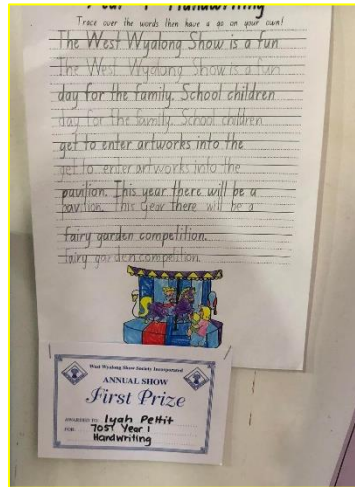 Year 1 Handwriting
Trace over the words then have a go on your own!
The West Wyalong Show is a fun
The West Wyalong Show is a fun
day for the family. School children
day for the family. School children
get to enter artworks into the
get to enter artworks into the
pavilion. This year there will be a
pavilion. This year there will be a
fairy garden competition.
fairy garden competition.
West Wyalong Show Society Incorporated
ANNUAL SHOW
First Prize
AWARDED TO Iyah Pettit
FOR 7051 Year 1
Handwriting